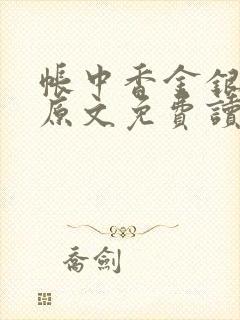 帳中香金銀
原文免費讀
喬劍